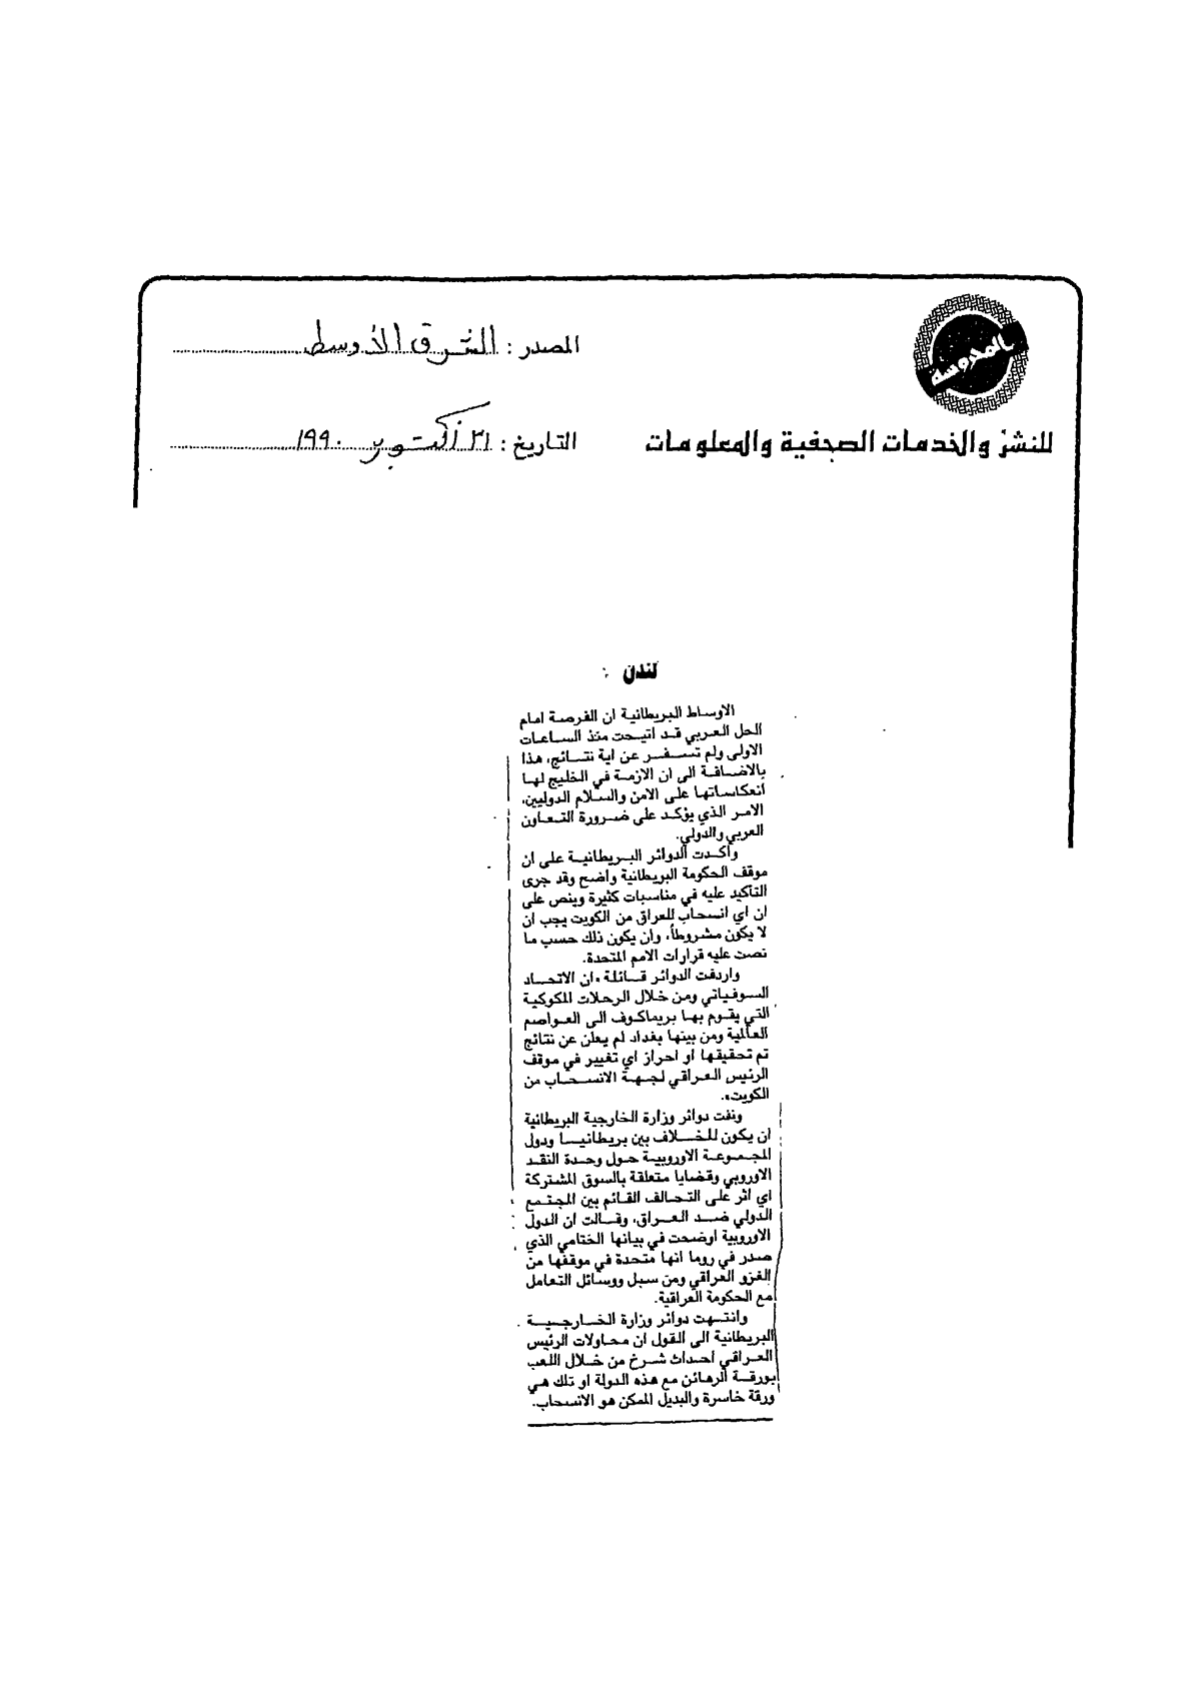 المحروسة
للنشر والخدمات الصحفية والمعلومات
المصدر : الشرق الأوسط
التاريخ : ٣١ أكتوبر ١٩٩٠
لندن :
الاوساط البريطانية ان الفرصة امام
الحل العربي قد اتيحت منذ الساعات
الاولى ولم تسفر عن اية نتائج، هذا
بالاضافة الى ان الازمة في الخليج لها
انعكاساتها على الامن والسلام الدوليين،
الامر الذي يؤكد على ضرورة التعاون
العربي والدولي.
واكدت الدوائر البريطانية على ان
موقف الحكومة البريطانية واضح وقد جرى
التاكيد عليه في مناسبات كثيرة وينص على
ان اي انسحاب للعراق من الكويت يجب ان
لا يكون مشروطاً، وان يكون ذلك حسب ما
نصت عليه قرارات الامم المتحدة.
واردفت الدوائر قائلة «ان الاتحاد
السوفياتي ومن خلال الرحلات المكوكية
التي يقوم بها بريماكوف الى العواصم
العالمية ومن بينها بغداد لم يعلن عن نتائج
تم تحقيقها او احراز اي تغيير في موقف
الرئيس العراقي لجهة الانسحاب من
الكويت».
ونفت دوائر وزارة الخارجية البريطانية
ان يكون للخلاف بين بريطانيا ودول
المجموعة الاوروبية حول وحدة النقد
الاوروبي وقضايا متعلقة بالسوق المشتركة
اي اثر على التحالف القائم بين المجتمع
الدولي ضد العراق، وقالت ان الدول
الاوروبية اوضحت في بيانها الختامي الذي
صدر في روما انها متحدة في موقفها من
الغزو العراقي ومن سبل ووسائل التعامل
مع الحكومة العراقية.
وانتهت دوائر وزارة الخارجية
البريطانية الى القول ان محاولات الرئيس
العراقي احداث شرخ من خلال اللعب
بورقة الرهائن مع هذه الدولة او تلك هي
ورقة خاسرة والبديل الممكن هو الانسحاب.